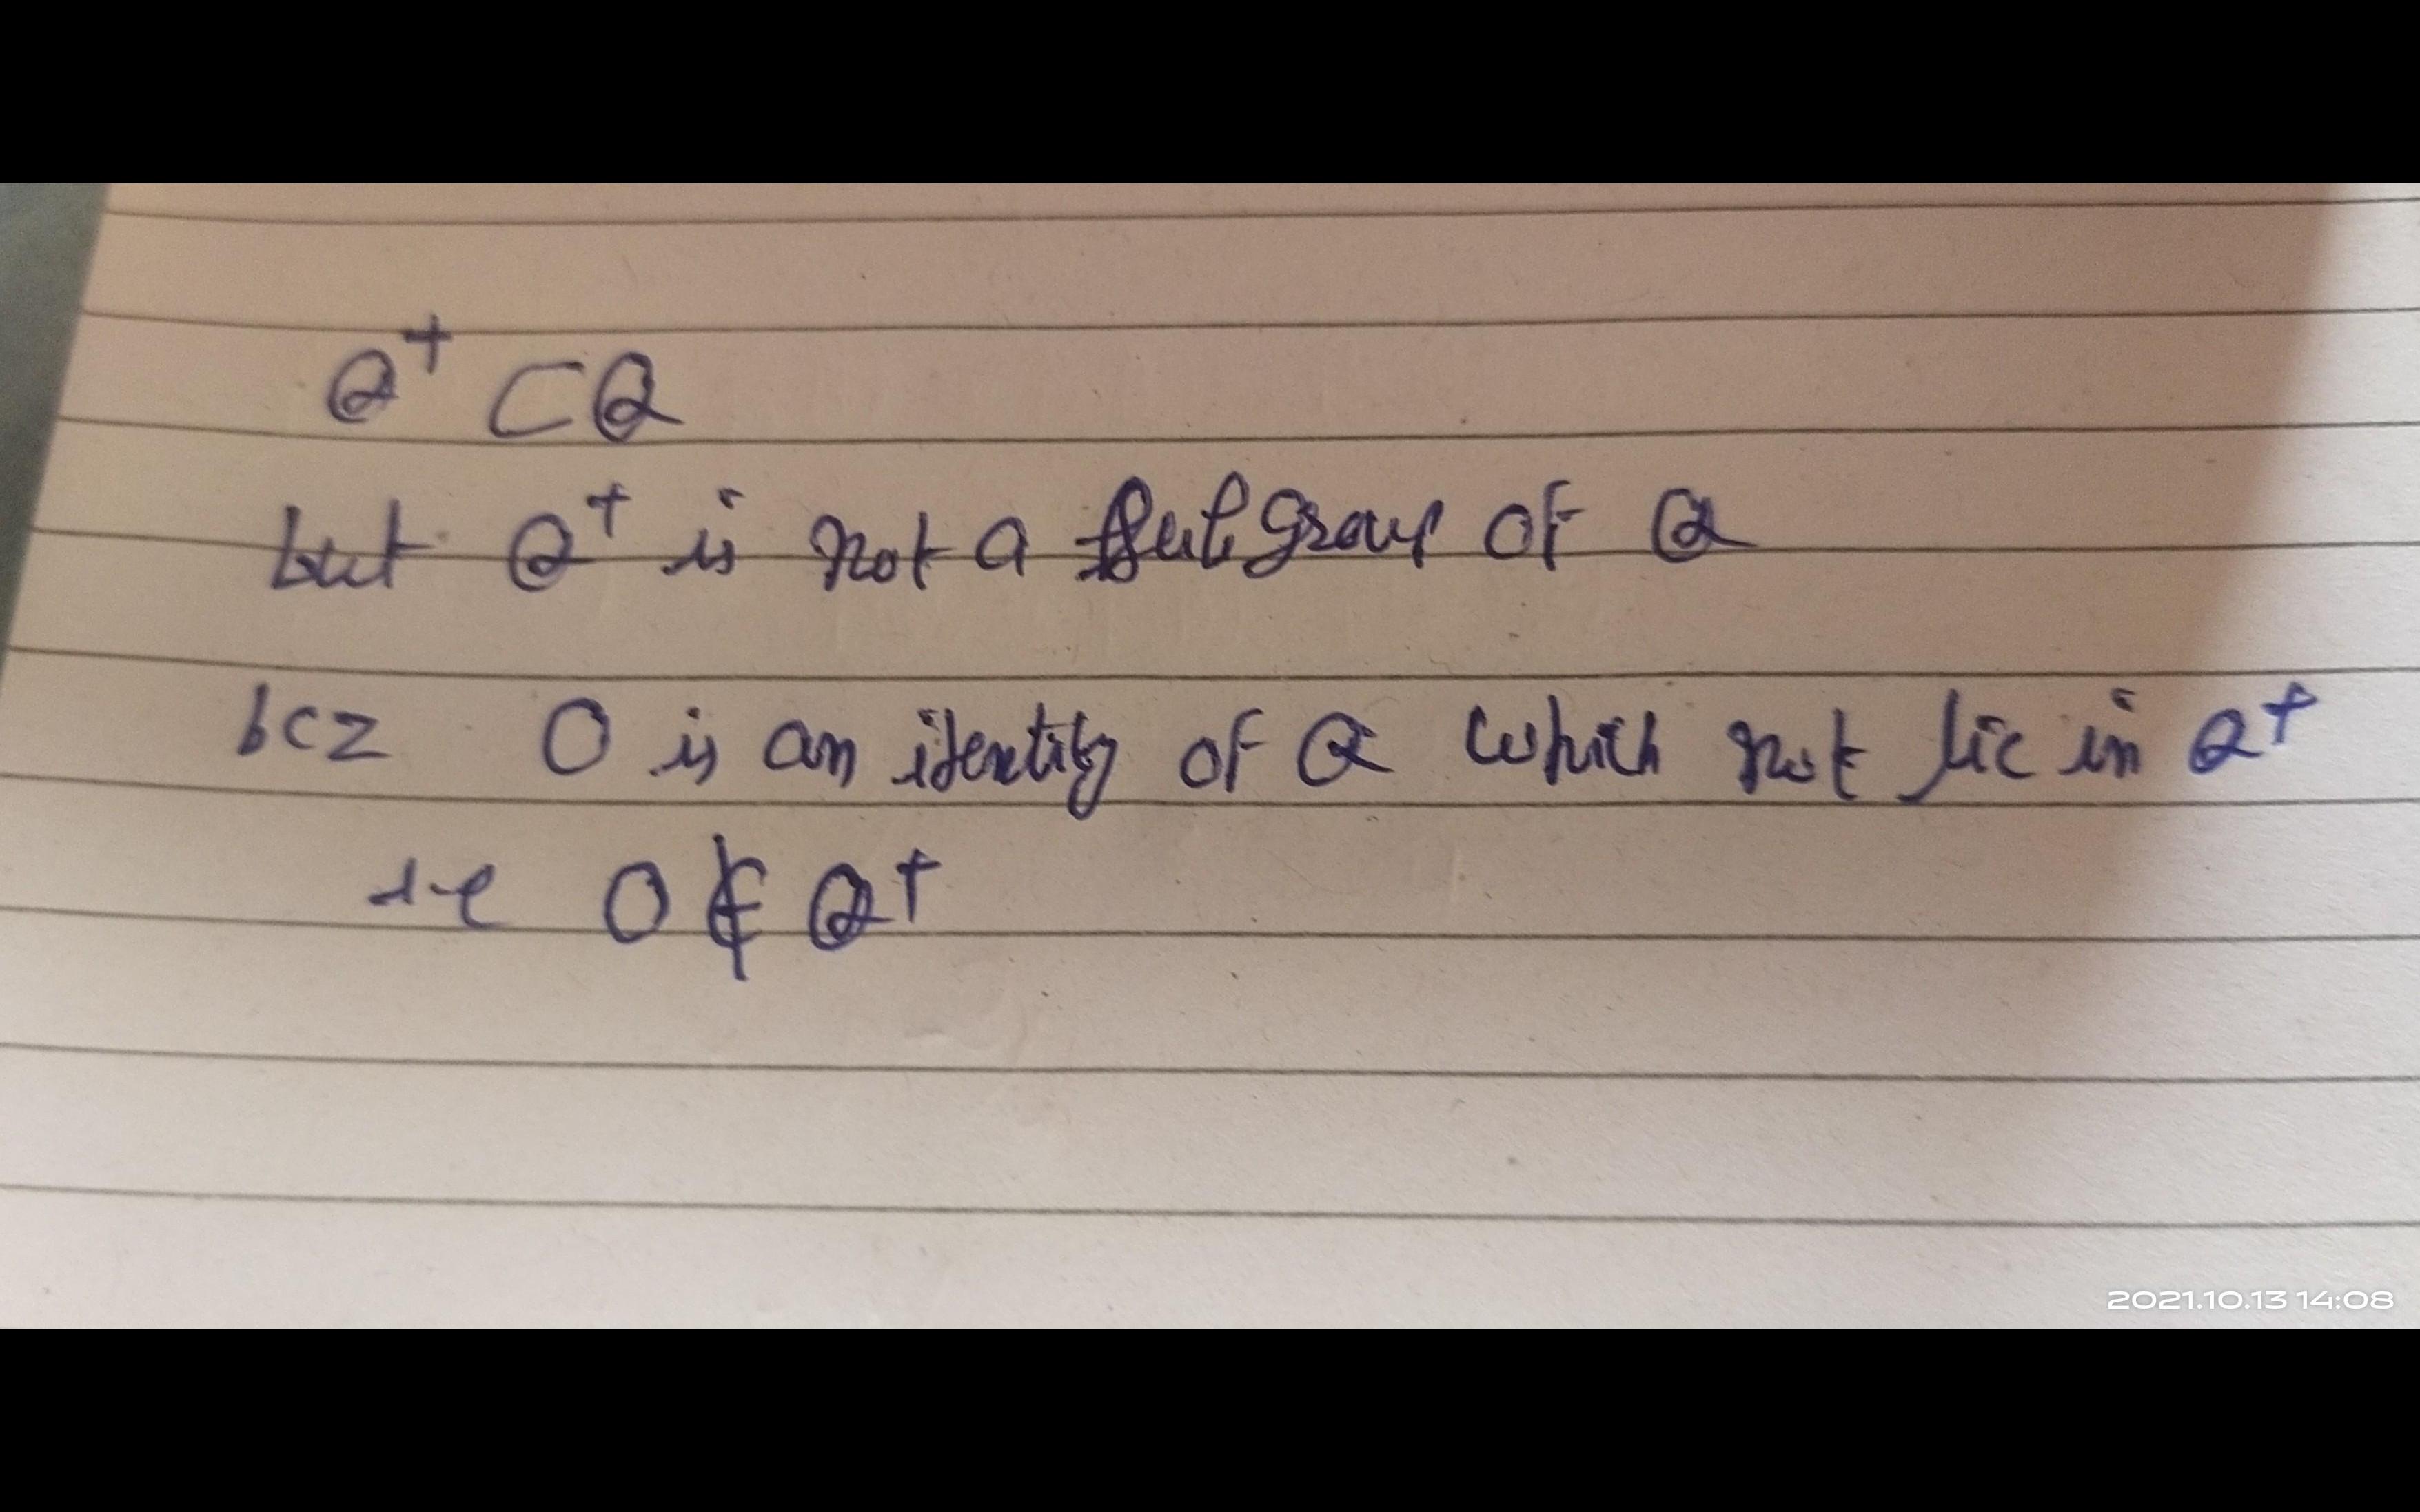 Q⁺ ⊂ Q
but Q⁺ is not a subgroup of Q
bcz 0 is an identity of Q which not lie in Q⁺
i-e 0 ∉ Q⁺
2021.10.13 14:08